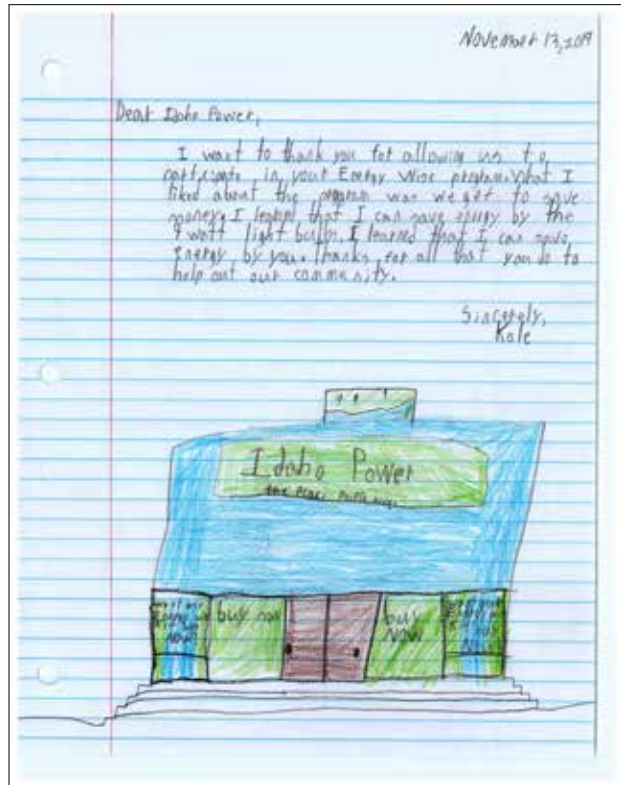 November 13, 2019
Dear Idaho Power,
I want to thank you for allowing us to
participate in your Energy Wise program. What I
liked about the program was we get to save
money. I learned that I can save energy by the
9 watt light bulbs. I learned that I can save
Energy by you. Thanks for all that you do to
help out our community.
Sincerely,
Kole
Idaho Power
the
buy now
buy
NOW
NOW